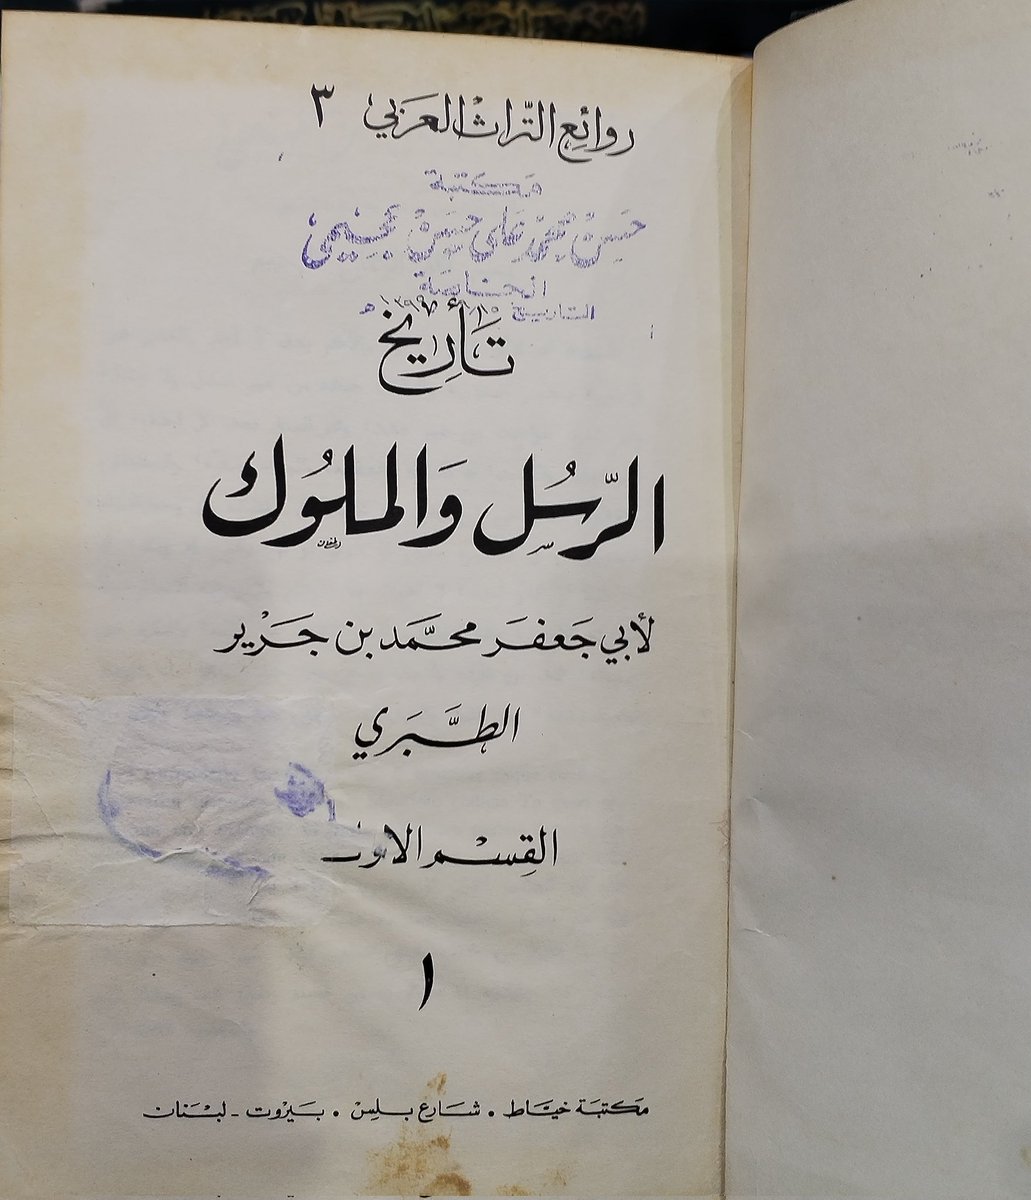 روائع التّراث العَرَبي ٣
مَكتبَة
حسن محمد علي حسين
التاريخ ١٣٩٩ هـ
تَأرِيخ
الرّسُل وَالملوُك
لأبي جَعفَر محمَّد بن جَرير
الطَّبَري
القِسْم الاول
١
مَكتبَة خيَّاط . شارع بلِسْ . بَيْروت - لبْنَان